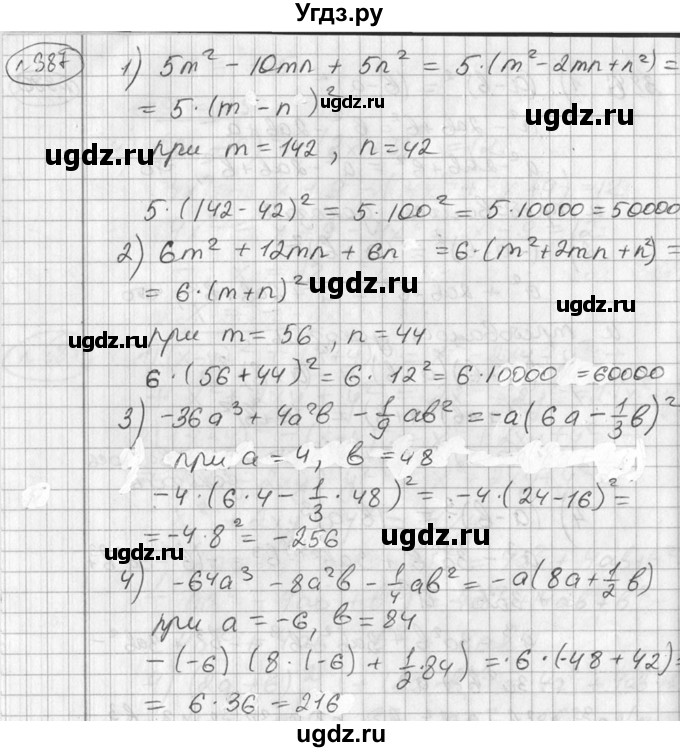 Угдз.ру
n.387
1) 5m² - 10mn + 5n² = 5·(m² - 2mn + n²) =
= 5·(m - n)²
ugdz.ru
ugdz.ru
ugdz.ru
при m = 142, n = 42
5·(142 - 42)² = 5·100² = 5·10000 = 50000
2) 6m² + 12mn + 6n = 6·(m² + 2mn + n²) =
ugdz.ru
= 6·(m + n)²
ugdz.ru
ugdz.ru
при m = 56, n = 44
ugdz.ru
6·(56 + 44)² = 6·12² = 6·10000 = 60000
3) -36a³ + 4a²b - 1/9 ab² = -a(6a - 1/3 b)²
при a = 4, b = 48
-4·(6·4 - 1/3·48)² = -4·(24 - 16)² =
= -4·8² = -256
ugdz.ru
ugdz.ru
4) -64a³ - 8a²b - 1/4 ab² = -a(8a + 1/2 b)
при a = -6, b = 84
-(-6)(8·(-6) + 1/2·84) = 6·(-48 + 42) =
= 6·36 = 216
ugdz.ru
ugdz.ru
ugdz.ru